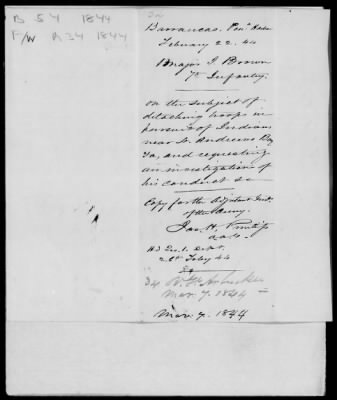 B 54 1844
F/W R 34 1844
Barrancas, Pen&#x27; Harbor
February 22. 44
Major J. Brown
7th Infantry
on the subject of
detaching troops in
pursuit of Indians
near St. Andrews Bay
and requesting
an investigation of
his conduct &c
Copy for the Adjutant Genl.
of the Army.
Jas. H.
Hd Qrs.
44
34
Mar. 7. 1844
Mar. 7. 1844